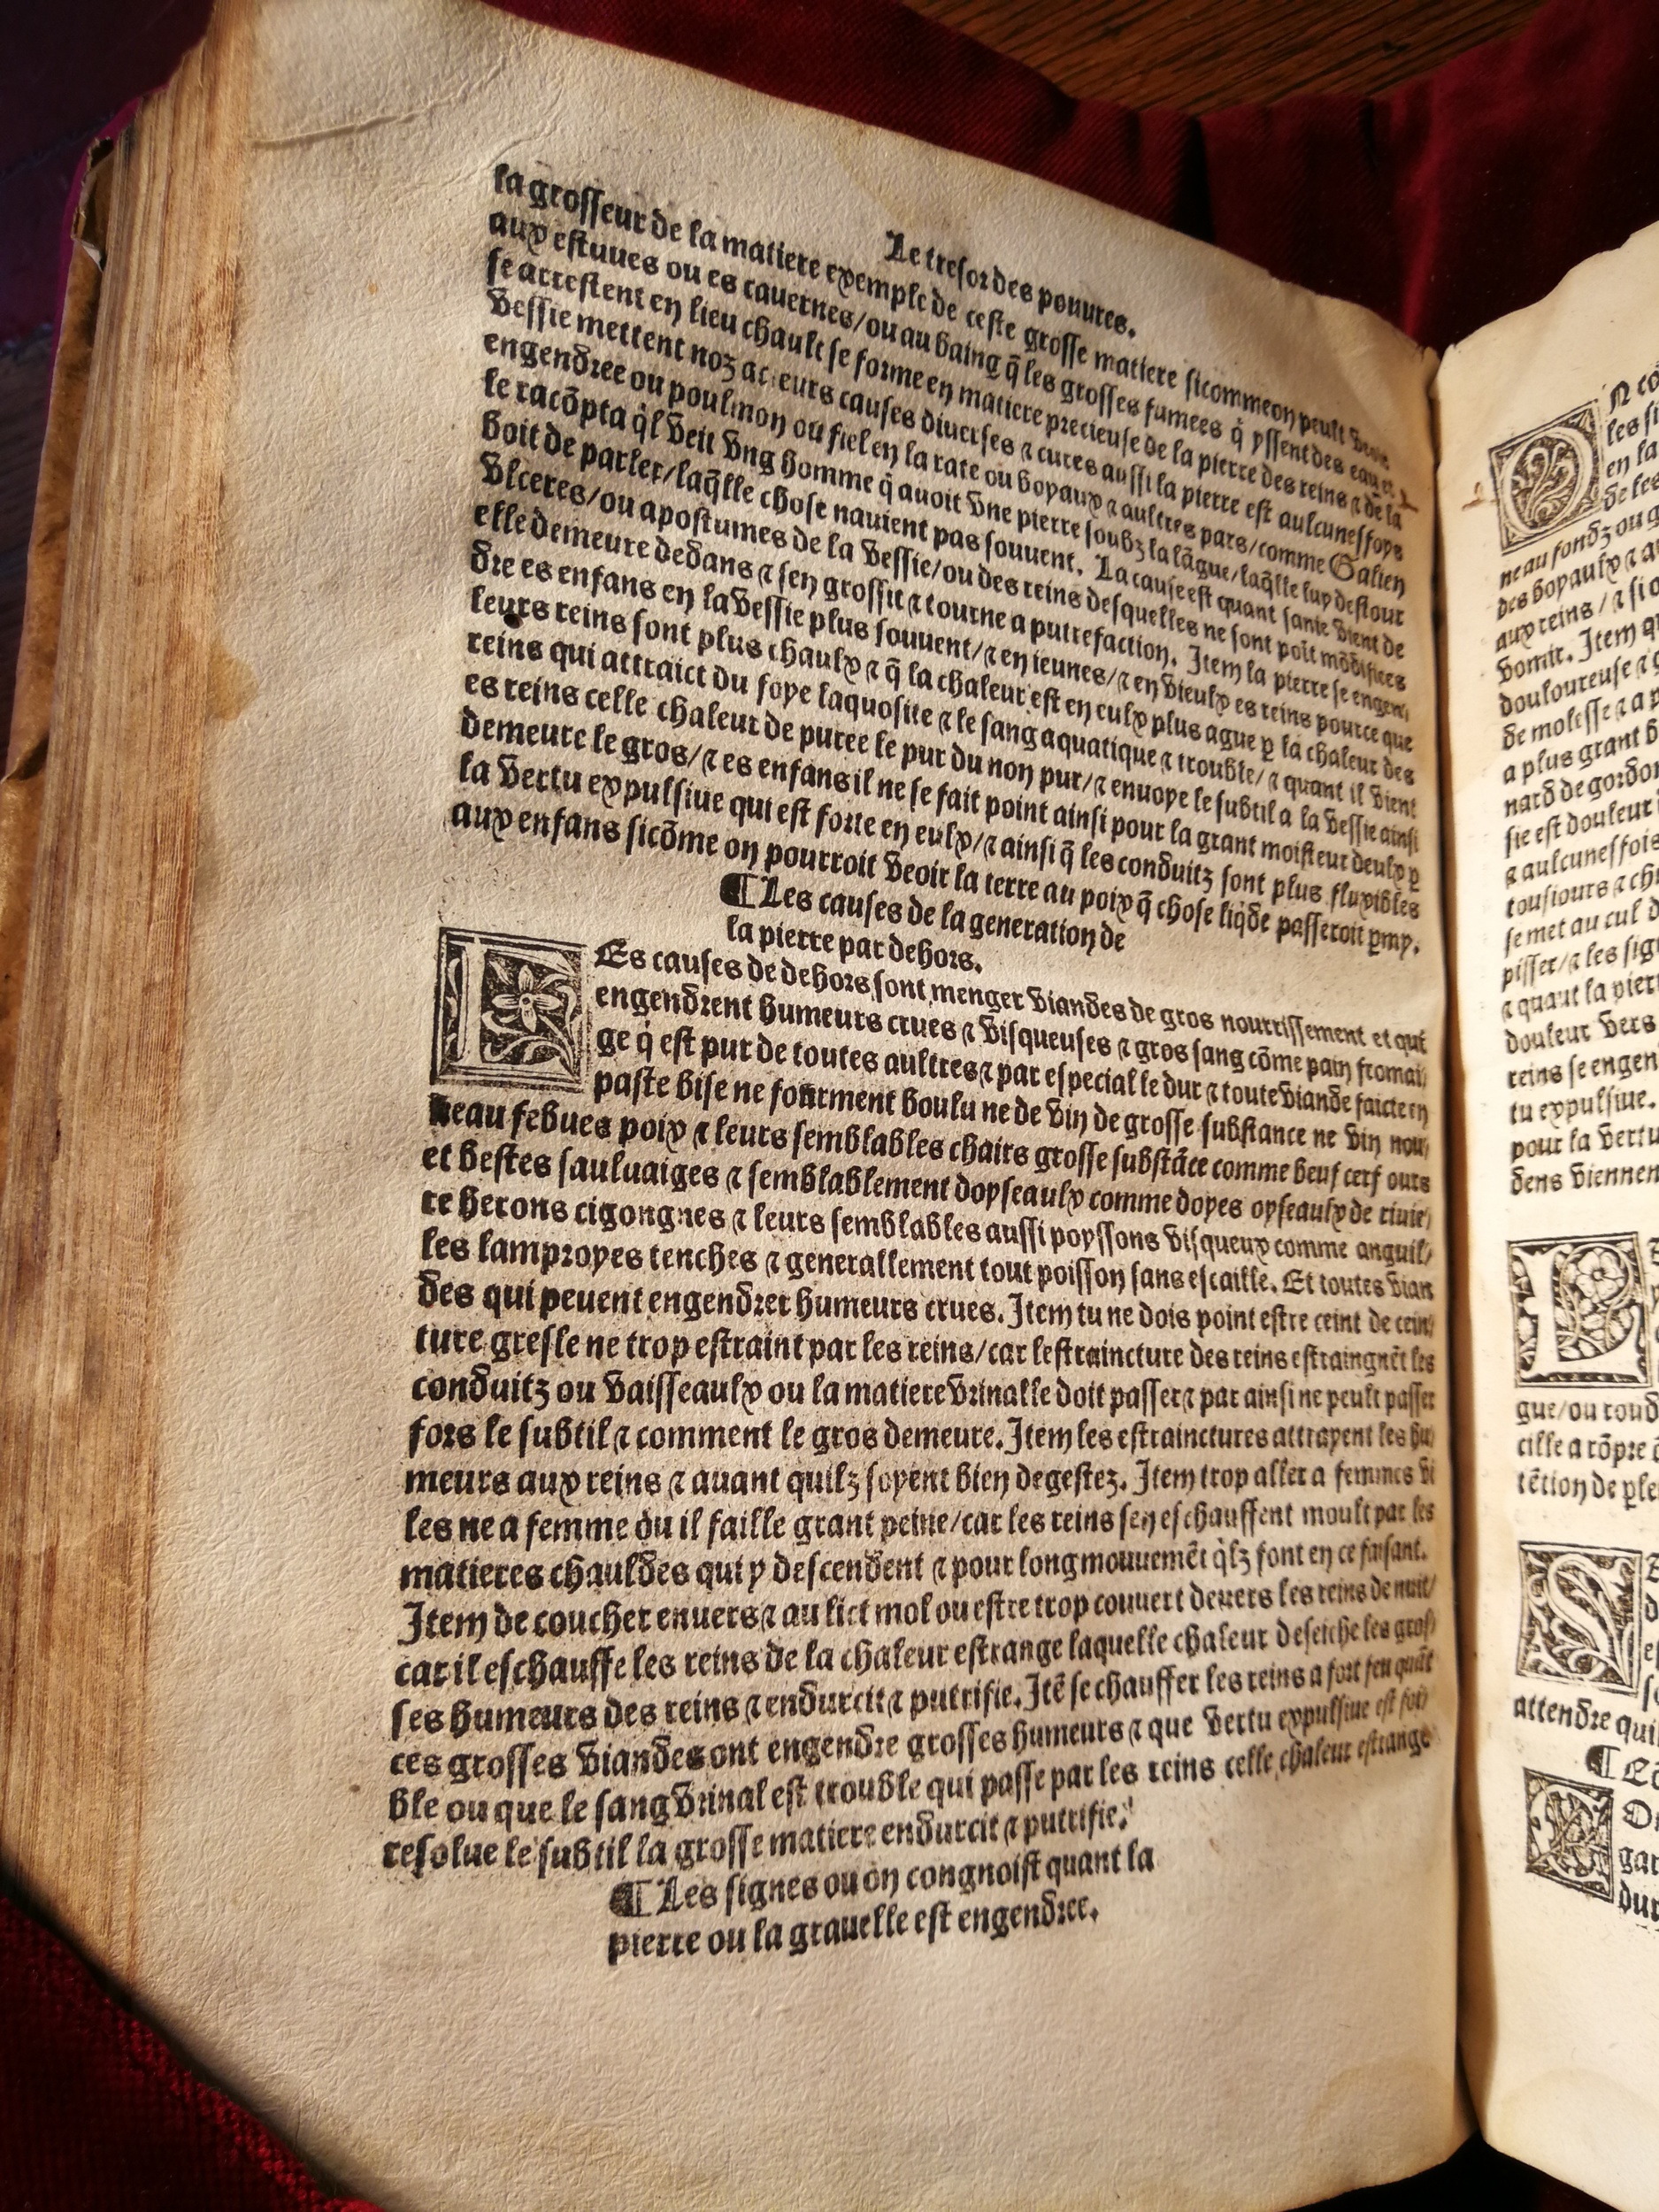 Le tresor des pouures.
la grosseur de la matiere exemple de ceste grosse matiere sicomme on peult veoir
aux estuues ou es cauernes/ou au baing q̃ les grosses fumees q̃ yssent des eaux
se arrestent en lieu chault se forme en matiere precieuse de la pierre des reins ⁊ de la
vessie mettent noz acteurs causes diuerses ⁊ cures aussi la pierre est aulcunesfoys
engendree ou poulmon ou fiel en la rate ou boyaux ⁊ aultres pars/comme Galien
le racōpta q̃l veit vng homme q̃ auoit vne pierre soubz la lāgue/laq̃lle luy destour
boit de parler/laq̃lle chose nauient pas souuent. La cause est quant sanie vient de
vlceres/ou apostumes de la vessie/ou des reins desquelles ne sont poīt mōdifiees
elle demeure dedans ⁊ sen grossit ⁊ tourne a putrefaction. Item la pierre se engen/
dre es enfans en la vessie plus souuent/⁊ en ieunes/⁊ en vieulx es reins pource que
leurs reins sont plus chaulx ⁊ q̃ la chaleur est en eulx plus ague ꝑ la chaleur des
reins qui attraict du foye laquosite ⁊ le sang aquatique ⁊ trouble/⁊ quant il vient
es reins celle chaleur de puree le pur du non pur/⁊ enuoye le subtil a la vessie ainsi
demeure le gros/⁊ es enfans il ne se fait point ainsi pour la grant moisteur deulx ꝑ
la vertu expulsiue qui est forte en eulx/⁊ ainsi q̃ les conduitz sont plus fluxibles
aux enfans sicōme on pourroit veoir la terre au poix q̃ chose liq̃de passeroit ꝑmy.
¶ Les causes de la generation de
la pierre par dehors.
LEs causes de dehors sont menger viandes de gros nourrissement et qui
engendrent humeurs crues ⁊ visqueuses ⁊ gros sang cōme pain fromai/
ge q̃ est pur de toutes aultres ⁊ par especial le dur ⁊ toute viande faicte en
paste bise ne fourment boulu ne de vin de grosse substance ne vin nou/
ueau febues poix ⁊ leurs semblables chairs grosse substāce comme beuf cerf ours
et bestes sauluaiges ⁊ semblablement doyseaulx comme doyes oyseaulx de riuie/
re herons cigongnes ⁊ leurs semblables aussi poyssons visqueux comme anguil/
les lamproyes tenches ⁊ generallement tout poisson sans escaille. Et toutes vian
des qui peuent engendrer humeurs crues. Item tu ne dois point estre ceint de cein/
ture gresle ne trop estraint par les reins/car lestraincture des reins estraingnēt les
conduitz ou vaisseaulx ou la matiere vrinalle doit passer ⁊ par ainsi ne peult passer
fors le subtil ⁊ comment le gros demeure. Item les estrainctures attrayent les hu/
meurs aux reins ⁊ auant quilz soyent bien degestez. Item trop aller a femmes vi
les ne a femme ou il faille grant peine/car les reins sen eschauffent moult par les
matieres chauldes qui y descendent ⁊ pour long mouuemēt q̃lz font en ce faisant.
Item de coucher enuers ⁊ au lict mol ou estre trop couuert deuers les reins de nuit/
car il eschauffe les reins de la chaleur estrange laquelle chaleur deseiche les gros/
ses humeurs des reins ⁊ endurcit ⁊ putrifie. Itē se chauffer les reins a fort feu quāt
ces grosses viandes ont engendre grosses humeurs ⁊ que vertu expulsiue est foi/
ble ou que le sang vrinal est trouble qui passe par les reins celle chaleur estrange
resolue le subtil la grosse matiere endurcit ⁊ putrifie.
¶ Les signes ou on congnoist quant la
pierre ou la grauelle est engendree.
les si
en la
de les
neau fondz ou
des boyaulx ⁊
aux reins/⁊ si
vomir. Item
douloureuse ⁊
de molesse ⁊ a
a plus grant
nard de gordon
sie est douleur
⁊ aulcunesfois
tousiours ⁊
se met au cul
pisser/⁊ les
⁊ quant la
douleur vers
reins se
tu expulsiue.
pour la vertu
dens
gue/ou
cille a rōpre
tētion de
attendre